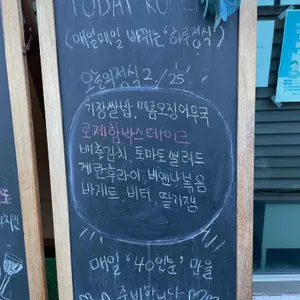 TODAY
(매일매일 바뀌는 '하루정식')
오늘의정식 2/25
기장쌀밥, 매콤오징어무국
로제함박스테이크
배추김치, 토마토샐러드
계란후라이, 비엔나볶음
바게트, 버터, 딸기잼
매일 '40인분' 만을
준비합니다